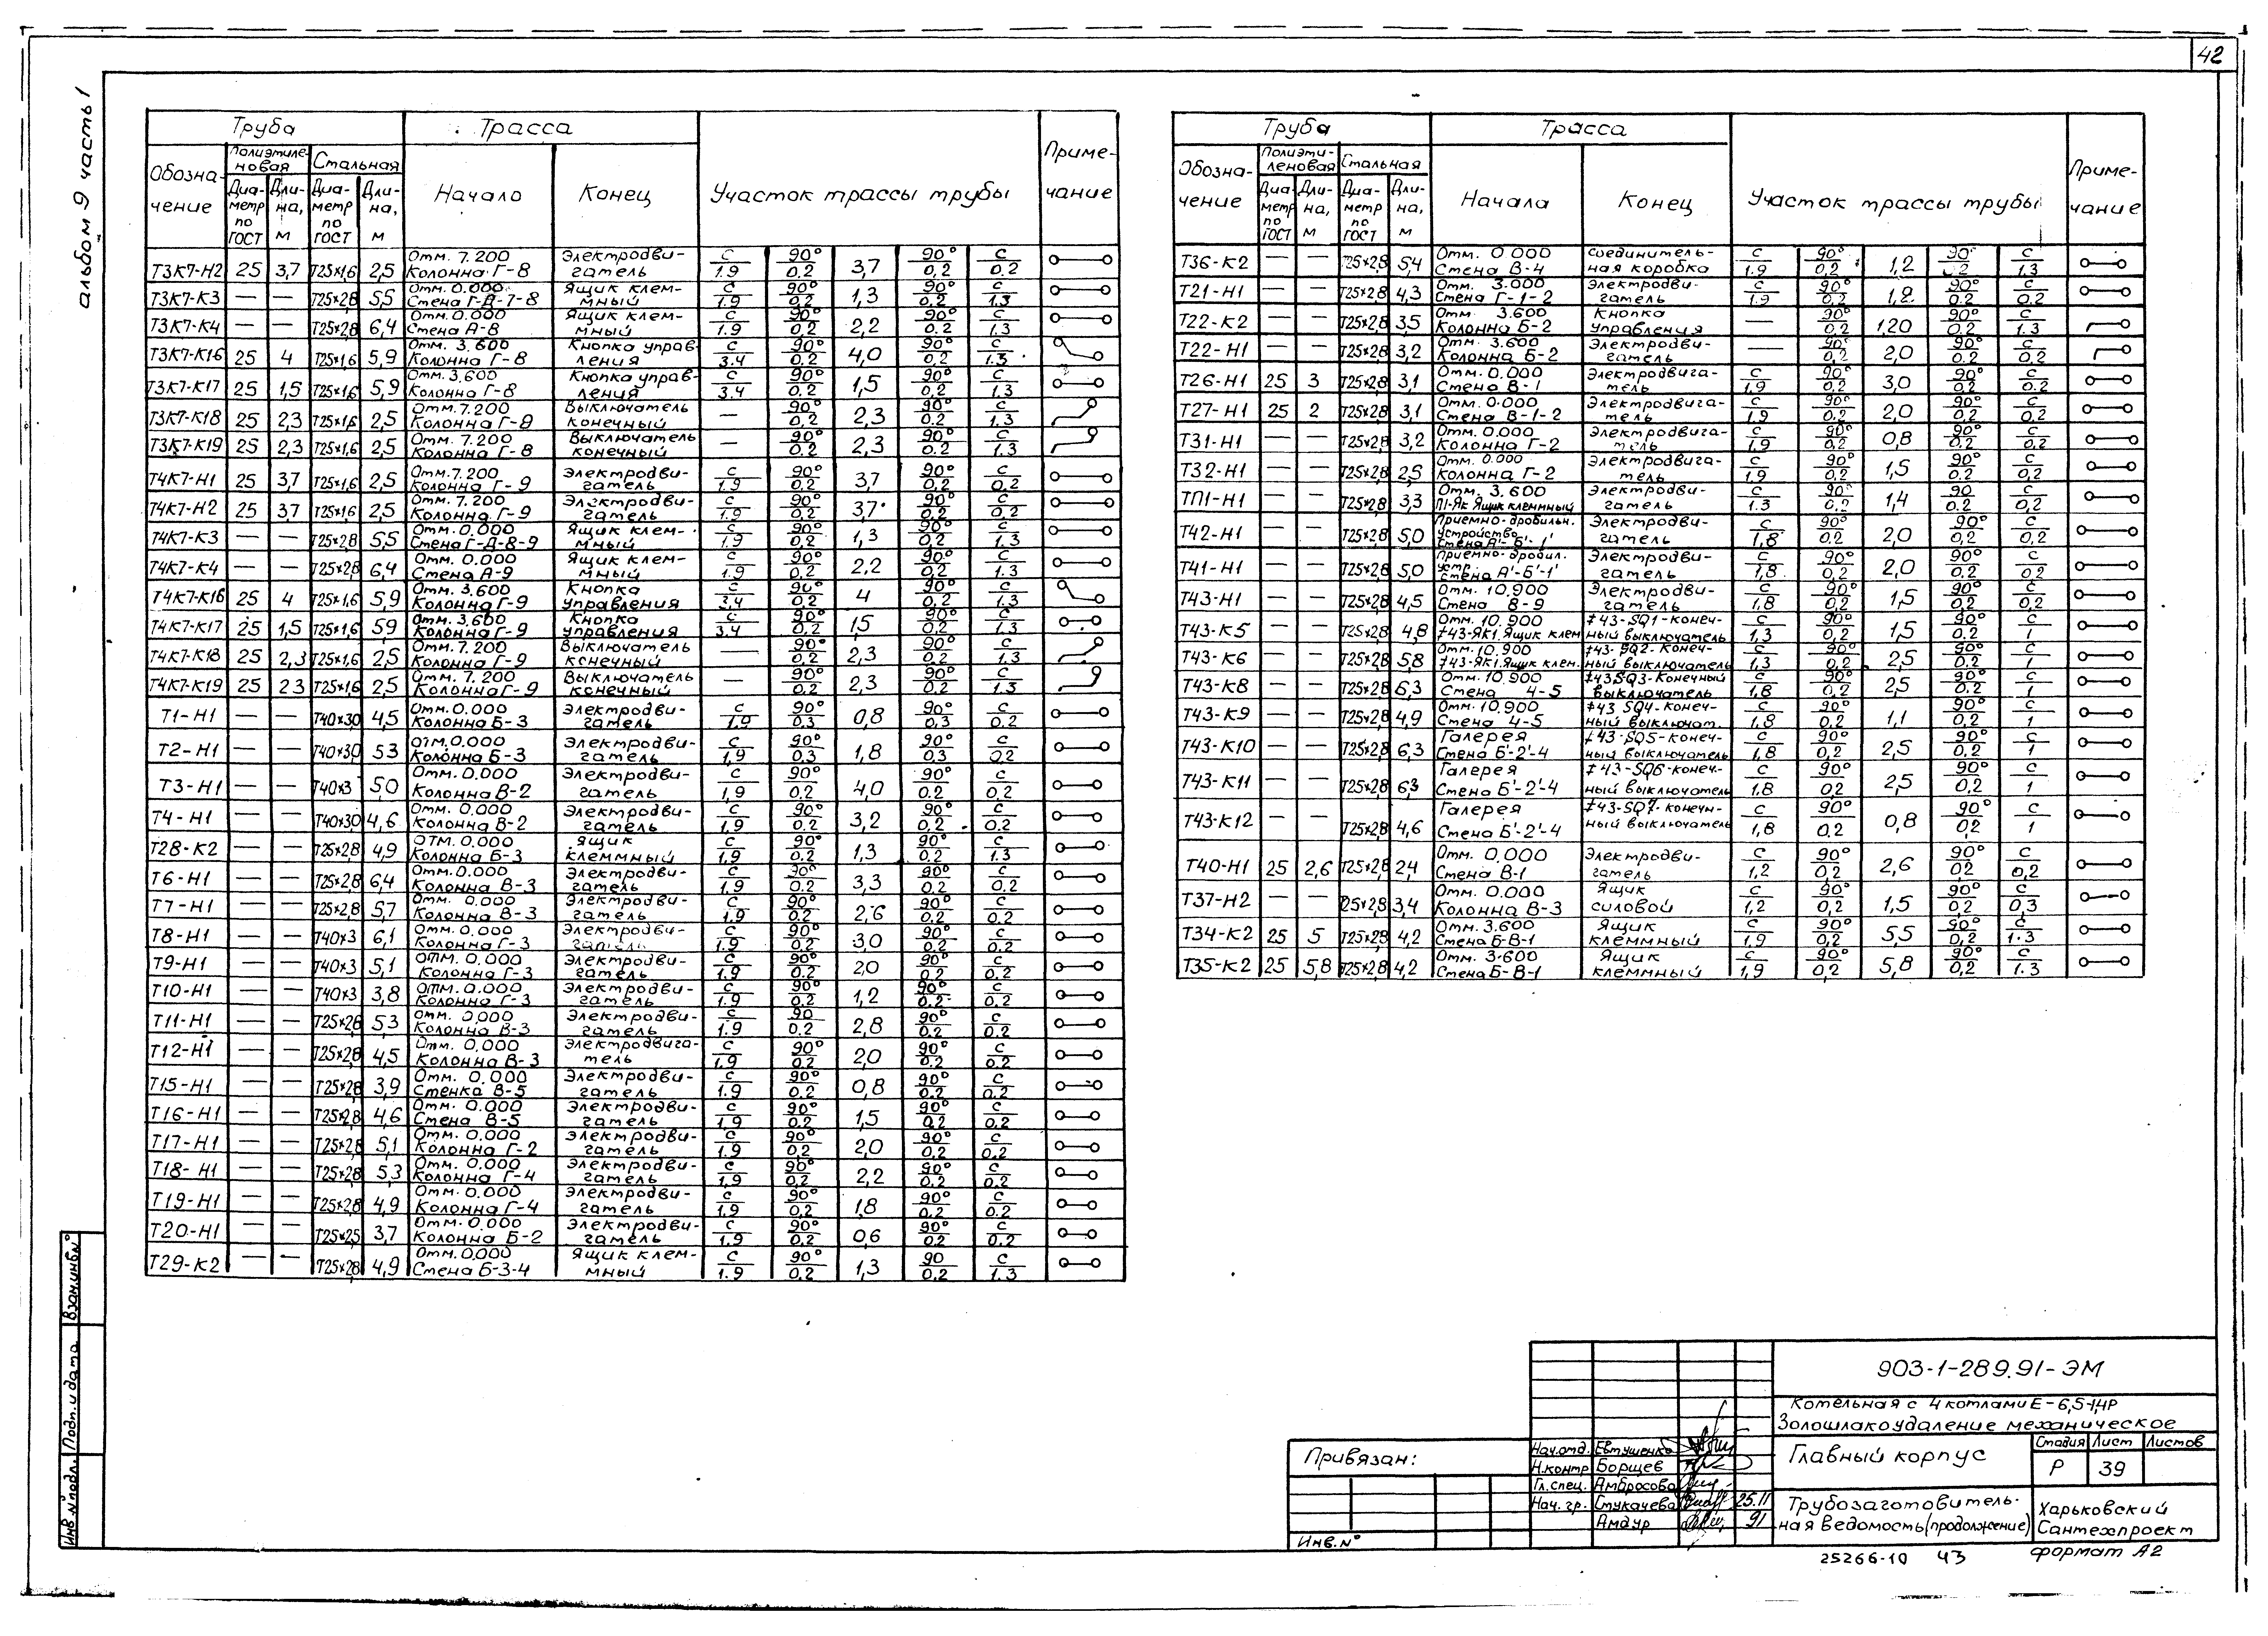 42
альбом 9 часть 1
Труба Трасса Участок трассы трубы Приме-чание
Обозна-чение Полиэтиле-новая Стальная Начало Конец
Диа-метр по ГОСТ Дли-на, м Диа-метр по ГОСТ Дли-на, м
Т3К7-Н2 25 3,7 Т25×1,6 2,5 Отм. 7.200 Колонна Г-8 Электродви-гатель С/1.9 90°/0.2 3,7 90°/0.2 С/0.2
Т3К7-К3 — — Т25×2,8 5,5 Отм. 0.000 Стена Г-Д-7-8 Ящик клем-мный С/1.9 90°/0.2 1,3 90°/0.2 С/1.3
Т3К7-К4 — — Т25×2,8 6,4 Отм. 0.000 Стена А-8 Ящик клем-мный С/1.9 90°/0.2 2,2 90°/0.2 С/1.3
Т3К7-К16 25 4 Т25×1,6 5,9 Отм. 3.600 Колонна Г-8 Кнопка управ-ления С/3.4 90°/0.2 4,0 90°/0.2 С/1.3
Т3К7-К17 25 1,5 Т25×1,6 5,9 Отм. 3.600 Колонна Г-8 Кнопка управ-ления С/3.4 90°/0.2 1,5 90°/0.2 С/1.3
Т3К7-К18 25 2,3 Т25×1,6 2,5 Отм. 7.200 Колонна Г-8 Выключатель конечный — 90°/0,2 2,3 90°/0.2 С/1.3
Т3К7-К19 25 2,3 Т25×1,6 2,5 Отм. 7.200 Колонна Г-8 Выключатель конечный — 90°/0.2 2,3 90°/0.2 С/1.3
Т4К7-Н1 25 3,7 Т25×1,6 2,5 Отм. 7.200 Колонна Г-9 Электродви-гатель С/1.9 90°/0.2 3,7 90°/0.2 С/0.2
Т4К7-Н2 25 3,7 Т25×1,6 2,5 Отм. 7.200 Колонна Г-9 Электродви-гатель С/1.9 90°/0.2 3,7 90°/0.2 С/0.2
Т4К7-К3 — — Т25×2,8 5,5 Отм. 0.000 Стена Г-Д-8-9 Ящик клем-мный С/1.9 90°/0.2 1,3 90°/0.2 С/1.3
Т4К7-К4 — — Т25×2,8 6,4 Отм. 0.000 Стена А-9 Ящик клем-мный С/1.9 90°/0.2 2,2 90°/0.2 С/1.3
Т4К7-К16 25 4 Т25×1,6 5,9 Отм. 3.600 Колонна Г-9 Кнопка управления С/3,4 90°/0.2 4 90°/0.2 С/1.3
Т4К7-К17 25 1,5 Т25×1,6 5,9 Отм. 3.600 Колонна Г-9 Кнопка управления С/3.4 90°/0.2 1,5 90°/0.2 С/1.3
Т4К7-К18 25 2,3 Т25×1,6 2,5 Отм. 7.200 Колонна Г-9 Выключатель конечный — 90°/0.2 2,3 90°/0.2 С/1.3
Т4К7-К19 25 2,3 Т25×1,6 2,5 Отм. 7.200 Колонна Г-9 Выключатель конечный — 90°/0.2 2,3 90°/0.2 С/1.3
Т1-Н1 — — Т40×3,0 4,5 Отм. 0.000 Колонна Б-3 Электродви-гатель С/1,9 90°/0.3 0,8 90°/0.3 С/0.2
Т2-Н1 — — Т40×3,0 5,3 Отм. 0.000 Колонна Б-3 Электродви-гатель С/1,9 90°/0.3 1,8 90°/0.3 С/0.2
Т3-Н1 — — Т40×3 5,0 Отм. 0.000 Колонна В-2 Электродви-гатель С/1,9 90°/0.2 4,0 90°/0.2 С/0.2
Т4-Н1 — — Т40×3,0 4,6 Отм. 0.000 Колонна В-2 Электродви-гатель С/1.9 90°/0.2 3,2 90°/0.2 С/0.2
Т28-К2 — — Т25×2,8 4,9 Отм. 0.000 Колонна Б-3 Ящик клеммный С/1.9 90°/0.2 1,3 90°/0.2 С/1.3
Т6-Н1 — — Т25×2,8 6,4 Отм. 0.000 Колонна В-3 Электродви-гатель С/1.9 90°/0.2 3,3 90°/0.2 С/0.2
Т7-Н1 — — Т25×2,8 5,7 Отм. 0.000 Колонна В-3 Электродви-гатель С/1.9 90°/0.2 2,6 90°/0.2 С/0.2
Т8-Н1 — — Т40×3 6,1 Отм. 0.000 Колонна Г-3 Электродви-гатель С/1.9 90°/0.2 3,0 90°/0.2 С/0.2
Т9-Н1 — — Т40×3 5,1 Отм. 0.000 Колонна Г-3 Электродви-гатель С/1.9 90°/0.2 2,0 90°/0.2 С/0.2
Т10-Н1 — — Т40×3 3,8 Отм. 0.000 Колонна Г-3 Электродви-гатель С/1.9 90°/0.2 1,2 90°/0.2 С/0.2
Т11-Н1 — — Т25×2,8 5,3 Отм. 0.000 Колонна В-3 Электродви-гатель С/1.9 90/0.2 2,8 90°/0.2 С/0.2
Т12-Н1 — — Т25×2,8 4,5 Отм. 0.000 Колонна В-3 Электродвига-тель С/1.9 90°/0.2 2,0 90°/0.2 С/0.2
Т15-Н1 — — Т25×2,8 3,9 Отм. 0.000 Стенка В-5 Электродви-гатель С/1.9 90°/0.2 0,8 90°/0.2 С/0.2
Т16-Н1 — — Т25×2,8 4,6 Отм. 0.000 Стена В-5 Электродви-гатель С/1,9 90°/0.2 1,5 90°/0.2 С/0.2
Т17-Н1 — — Т25×2,8 5,1 Отм. 0.000 Колонна Г-2 Электродви-гатель С/1.9 90°/0.2 2,0 90°/0.2 С/0.2
Т18-Н1 — — Т25×2,8 5,3 Отм. 0.000 Колонна Г-4 Электродви-гатель С/1,9 90°/0.2 2,2 90°/0.2 С/0.2
Т19-Н1 — — Т25×2,8 4,9 Отм. 0.000 Колонна Г-4 Электродви-гатель С/1.9 90°/0.2 1,8 90°/0.2 С/0.2
Т20-Н1 — — Т25×2,5 3,7 Отм. 0.000 Колонна Б-2 Электродви-гатель С/1.9 90°/0.2 0,6 90°/0.2 С/0.2
Т29-К2 — — Т25×2,8 4,9 Отм. 0.000 Стена Б-3-4 Ящик клем-мный С/1.9 90°/0.2 1,3 90/0.2 С/1.3
Труба Трасса Участок трассы трубы Приме-чание
Обозна-чение Полиэти-леновая Стальная Начала Конец
Диа-метр по ГОСТ Дли-на, м Диа-метр по ГОСТ Дли-на, м
Т36-К2 — — Т25×2,8 5,4 Отм. 0.000 Стена В-4 Соединитель-ная коробка С/1.9 90°/0.2 1,2 90°/0.2 С/1.3
Т21-Н1 — — Т25×2,8 4,3 Отм. 3.000 Стена Г-1-2 Электродви-гатель С/1.9 90°/0.2 1,2 90°/0.2 С/0.2
Т22-К2 — — Т25×2,8 3,5 Отм. 3.600 Колонна Б-2 Кнопка управления — 90°/0.2 1,20 90°/0.2 С/1.3
Т22-Н1 — — Т25×2,8 3,2 Отм. 3.600 Колонна Б-2 Электродви-гатель — 90°/0,2 2,0 90°/0.2 С/0.2
Т26-Н1 25 3 Т25×2,8 3,1 Отм. 0.000 Стена В-1 Электродвига-тель С/1.9 90°/0.2 3,0 90°/0.2 С/0.2
Т27-Н1 25 2 Т25×2,8 3,1 Отм. 0.000 Стена В-1-2 Электродвига-тель С/1.9 90°/0.2 2,0 90°/0.2 С/0,2
Т31-Н1 — — Т25×2,8 3,2 Отм. 0.000 Колонна Г-2 Электродвига-тель С/1,9 90°/0.2 0,8 90°/0.2 С/0.2
Т32-Н1 — — Т25×2,8 2,5 Отм. 0.000 Колонна Г-2 Электродвига-тель С/1.9 90°/0.2 1,5 90°/0.2 С/0,2
ТП1-Н1 — — Т25×2,8 3,3 Отм. 3.600 П1-Як Ящик клеммный Электродви-гатель С/1.3 90°/0.2 1,4 90/0.2 С/0,2
Т42-Н1 — — Т25×2,8 5,0 Приемно-дробильн. устройство Стена А'-Б'-1' Электродви-гатель С/1,8 90°/0.2 2,0 90°/0.2 С/0.2
Т41-Н1 — — Т25×2,8 5,0 Приемно-дробил. устр. Стена А'-Б'-1' Электродви-гатель С/1,8 90°/0.2 2,0 90°/0.2 С/0,2
Т43-Н1 — — Т25×2,8 4,5 Отм. 10.900 Стена 8-9 Электродви-гатель С/1,8 90°/0.2 1,5 90°/0.2 С/0,2
Т43-К5 — — Т25×2,8 4,8 Отм. 10.900 ‡43-ЯК1. Ящик клем ‡43-SQ1-конеч-ный выключатель С/1,3 90°/0.2 1,5 90°/0.2 С/1
Т43-К6 — — Т25×2,8 5,8 Отм. 10.900 ‡43-ЯК1. Ящик клем. ‡43-SQ2-конеч-ный выключатель С/1,3 90°/0.2 2,5 90°/0.2 С/1
Т43-К8 — — Т25×2,8 6,3 Отм. 10.900 Стена 4-5 ‡43SQ3-Конечный выключатель С/1,8 90°/0,2 2,5 90°/0.2 С/1
Т43-К9 — — Т25×2,8 4,9 Отм. 10.900 Стена 4-5 ‡43 SQ4-конеч-ный выключат. С/1,8 90°/0.2 1,1 90°/0.2 С/1
Т43-К10 — — Т25×2,8 6,3 Галерея Стена Б'-2'-4 ‡43-SQ5-конеч-ный выключатель С/1,8 90°/0.2 2,5 90°/0.2 С/1
Т43-К11 — — Т25×2,8 6,3 Галерея Стена Б'-2'-4 ‡43-SQ6-конеч-ный выключатель С/1.8 90°/0.2 2,5 90°/0.2 С/1
Т43-К12 — — Т25×2,8 4,6 Галерея Стена Б'-2'-4 ‡43-SQ7-конечн-ный выключатель С/1,8 90°/0.2 0,8 90°/0,2 С/1
Т40-Н1 25 2,6 Т25×2,8 2,4 Отм. 0.000 Стена В-1 Электродви-гатель С/1,2 90°/0,2 2,6 90°/0,2 С/0,2
Т37-Н2 — — Т25×2,8 3,4 Отм. 0.000 Колонна В-3 Ящик силовой С/1,2 90°/0,2 1,5 90°/0,2 С/0,3
Т34-К2 25 5 Т25×2,8 4,2 Отм. 3.600 Стена Б-В-1 Ящик клеммный С/1,9 90°/0.2 5,5 90°/0,2 С/1.3
Т35-К2 25 5,8 Т25×2,8 4,2 Отм. 3.600 Стена Б-В-1 Ящик клеммный С/1,9 90°/0.2 5,8 90°/0,2 С/1.3
Инв. № подл. Подп. и дата Взам.инв№
Привязан:
Инв. №
Нач.отд. Евтушенко
Н.контр Борщев
Гл.спец. Амбросова
Нач. гр. Стукачева 25.11
Амдур 91
903-1-289.91-ЭМ
Котельная с 4 котлами Е-6,5-1,4Р
Золошлакоудаление механическое
Главный корпус
Стадия Лист Листов
Р 39
Трубозаготовитель-
ная ведомость (продолжение)
Харьковский
Сантехпроект
25266-10 43 формат А2